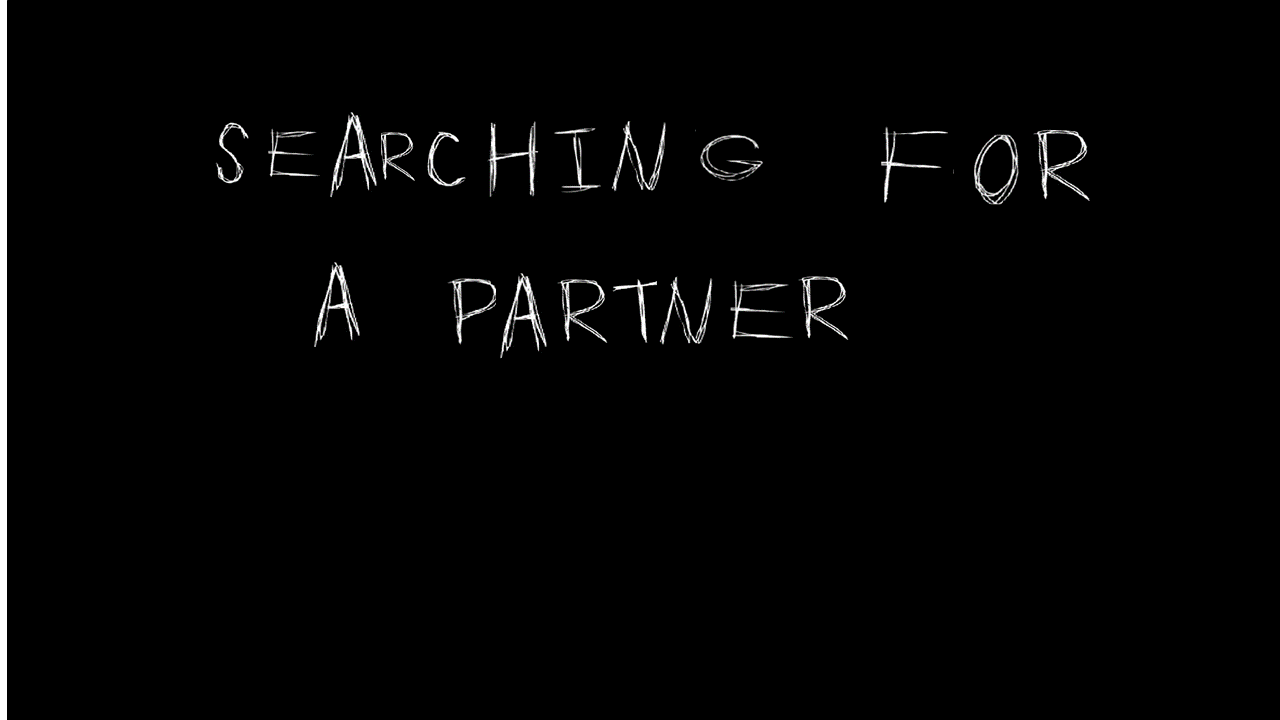 SEARCHING FOR
A PARTNER